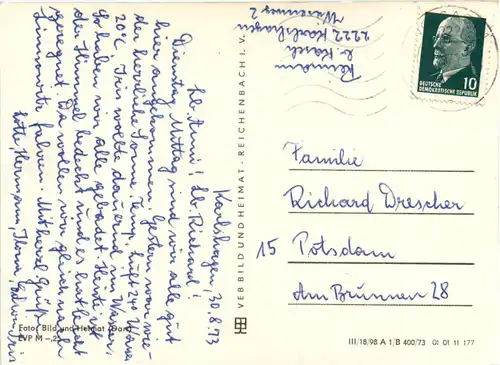 Karlshagen, 30.8.73
Lb. Anni! Lb. Richard!
Dienstag Mittag sind wir alle gut
hier angekommen. Gestern war wie-
der herrliche Sonne. Temp. Luft 24° Wasser
20°C. Jim wollte dauernd im Wasser.
So haben wir alle gebadet. Heute ist
der Himmel bedeckt und es hat leicht
geregnet. Da wollen wir gleich nach
fahren. Mit herzl. Grüß
Lotte, Hermann,
Reimann
b. Koch
2222 Karlshagen
2
DEUTSCHE
DEMOKRATISCHE REPUBLIK
10
VEB BILD UND HEIMAT · REICHENBACH I. V.
Familie
Richard Drescher
15 Potsdam
Am Brunnen 28
Foto: Bild und Heimat
EVP M -,2
III/18/98 A 1/B 400/73 01 01 11 177